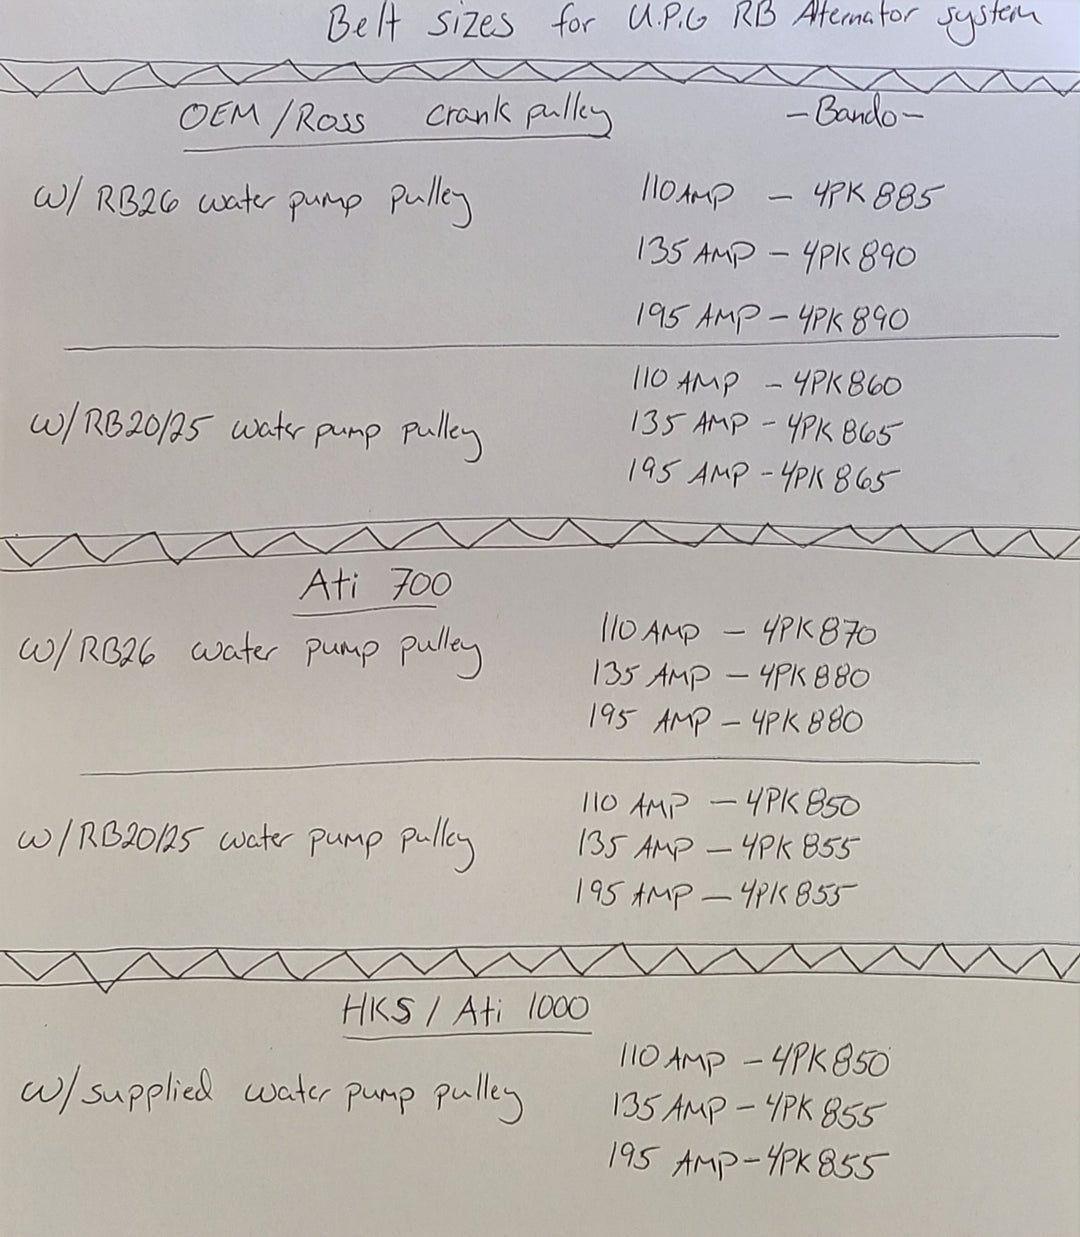 Belt sizes for U.P.G RB Alternator system
OEM/Ross crank pulley -Bando-
w/ RB26 water pump pulley 110 AMP - 4PK885
135 AMP - 4PK890
195 AMP - 4PK890
110 AMP - 4PK860
w/ RB20/25 water pump pulley 135 AMP - 4PK865
195 AMP - 4PK865
Ati 700
w/ RB26 water pump pulley 110 AMP - 4PK870
135 AMP - 4PK880
195 AMP - 4PK880
110 AMP - 4PK850
w/ RB20/25 water pump pulley 135 AMP - 4PK855
195 AMP - 4PK855
HKS / Ati 1000
110 AMP - 4PK850
w/ supplied water pump pulley 135 AMP - 4PK855
195 AMP - 4PK855